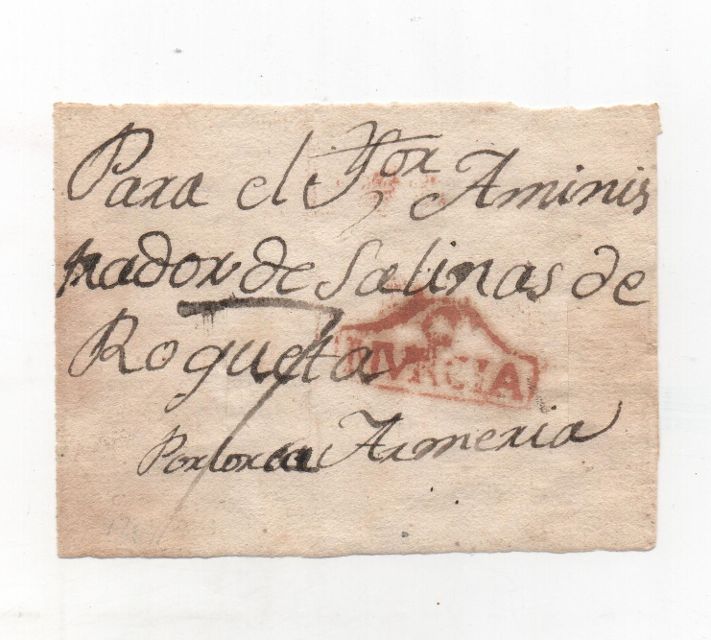 Para el Sor Aminis
trador de Salinas de
Roqueta
MVRCIA
Por lorca Armeria
7